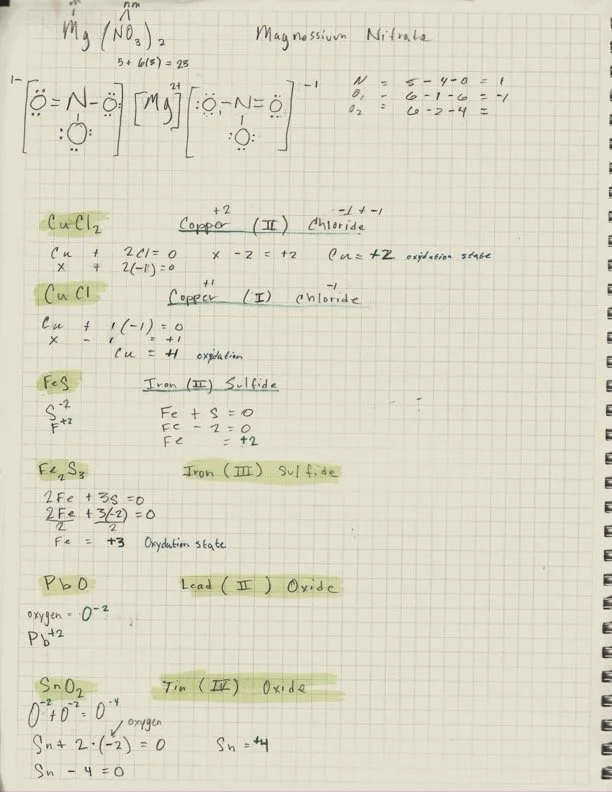 m nm
Mg (NO3)2 Magnessium Nitrate
5 + 6(3) = 23
1- [O = N - O] [Mg]2+ [O - N = O] -1
O O
N = 5 - 4 - 0 = 1
O1 - 6 - 1 - 6 = -1
O2 = 6 - 2 - 4 =
+2 -1 + -1
CuCl2 Copper (II) Chloride
Cu + 2Cl = 0 x - 2 = +2 Cu = +2 oxydation state
x + 2(-1) = 0
+1 -1
CuCl Copper (I) Chloride
Cu + 1(-1) = 0
x - 1 = +1
Cu = +1 oxydation
FeS Iron (II) Sulfide
S-2 Fe + S = 0
F+2 Fe - 2 = 0
Fe = +2
Fe2S3 Iron (III) Sulfide
2Fe + 3S = 0
2Fe + 3(-2) = 0
2 2
Fe = +3 Oxydation state
PbO Lead (II) Oxide
oxygen = O-2
Pb+2
SnO2 Tin (IV) Oxide
O-2 + O-2 = O-4
oxygen
Sn + 2·(-2) = 0 Sn = +4
Sn - 4 = 0